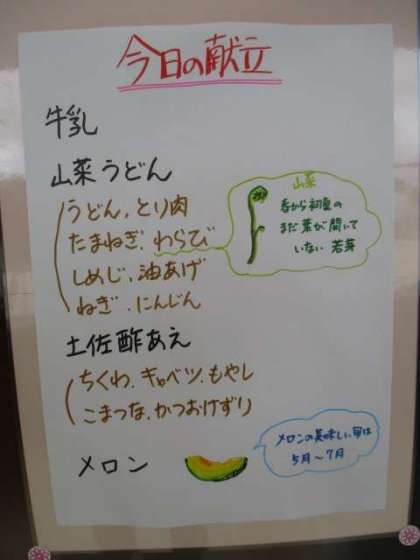 今日の献立
牛乳
山菜うどん
うどん、とり肉
たまねぎ、わらび
しめじ、油あげ
ねぎ、にんじん
山菜
春から初夏の
まだ葉が開いて
いない若芽
土佐酢あえ
ちくわ、キャベツ、もやし
こまつな、かつおけずり
メロン
メロンの美味しい旬は
5月～7月